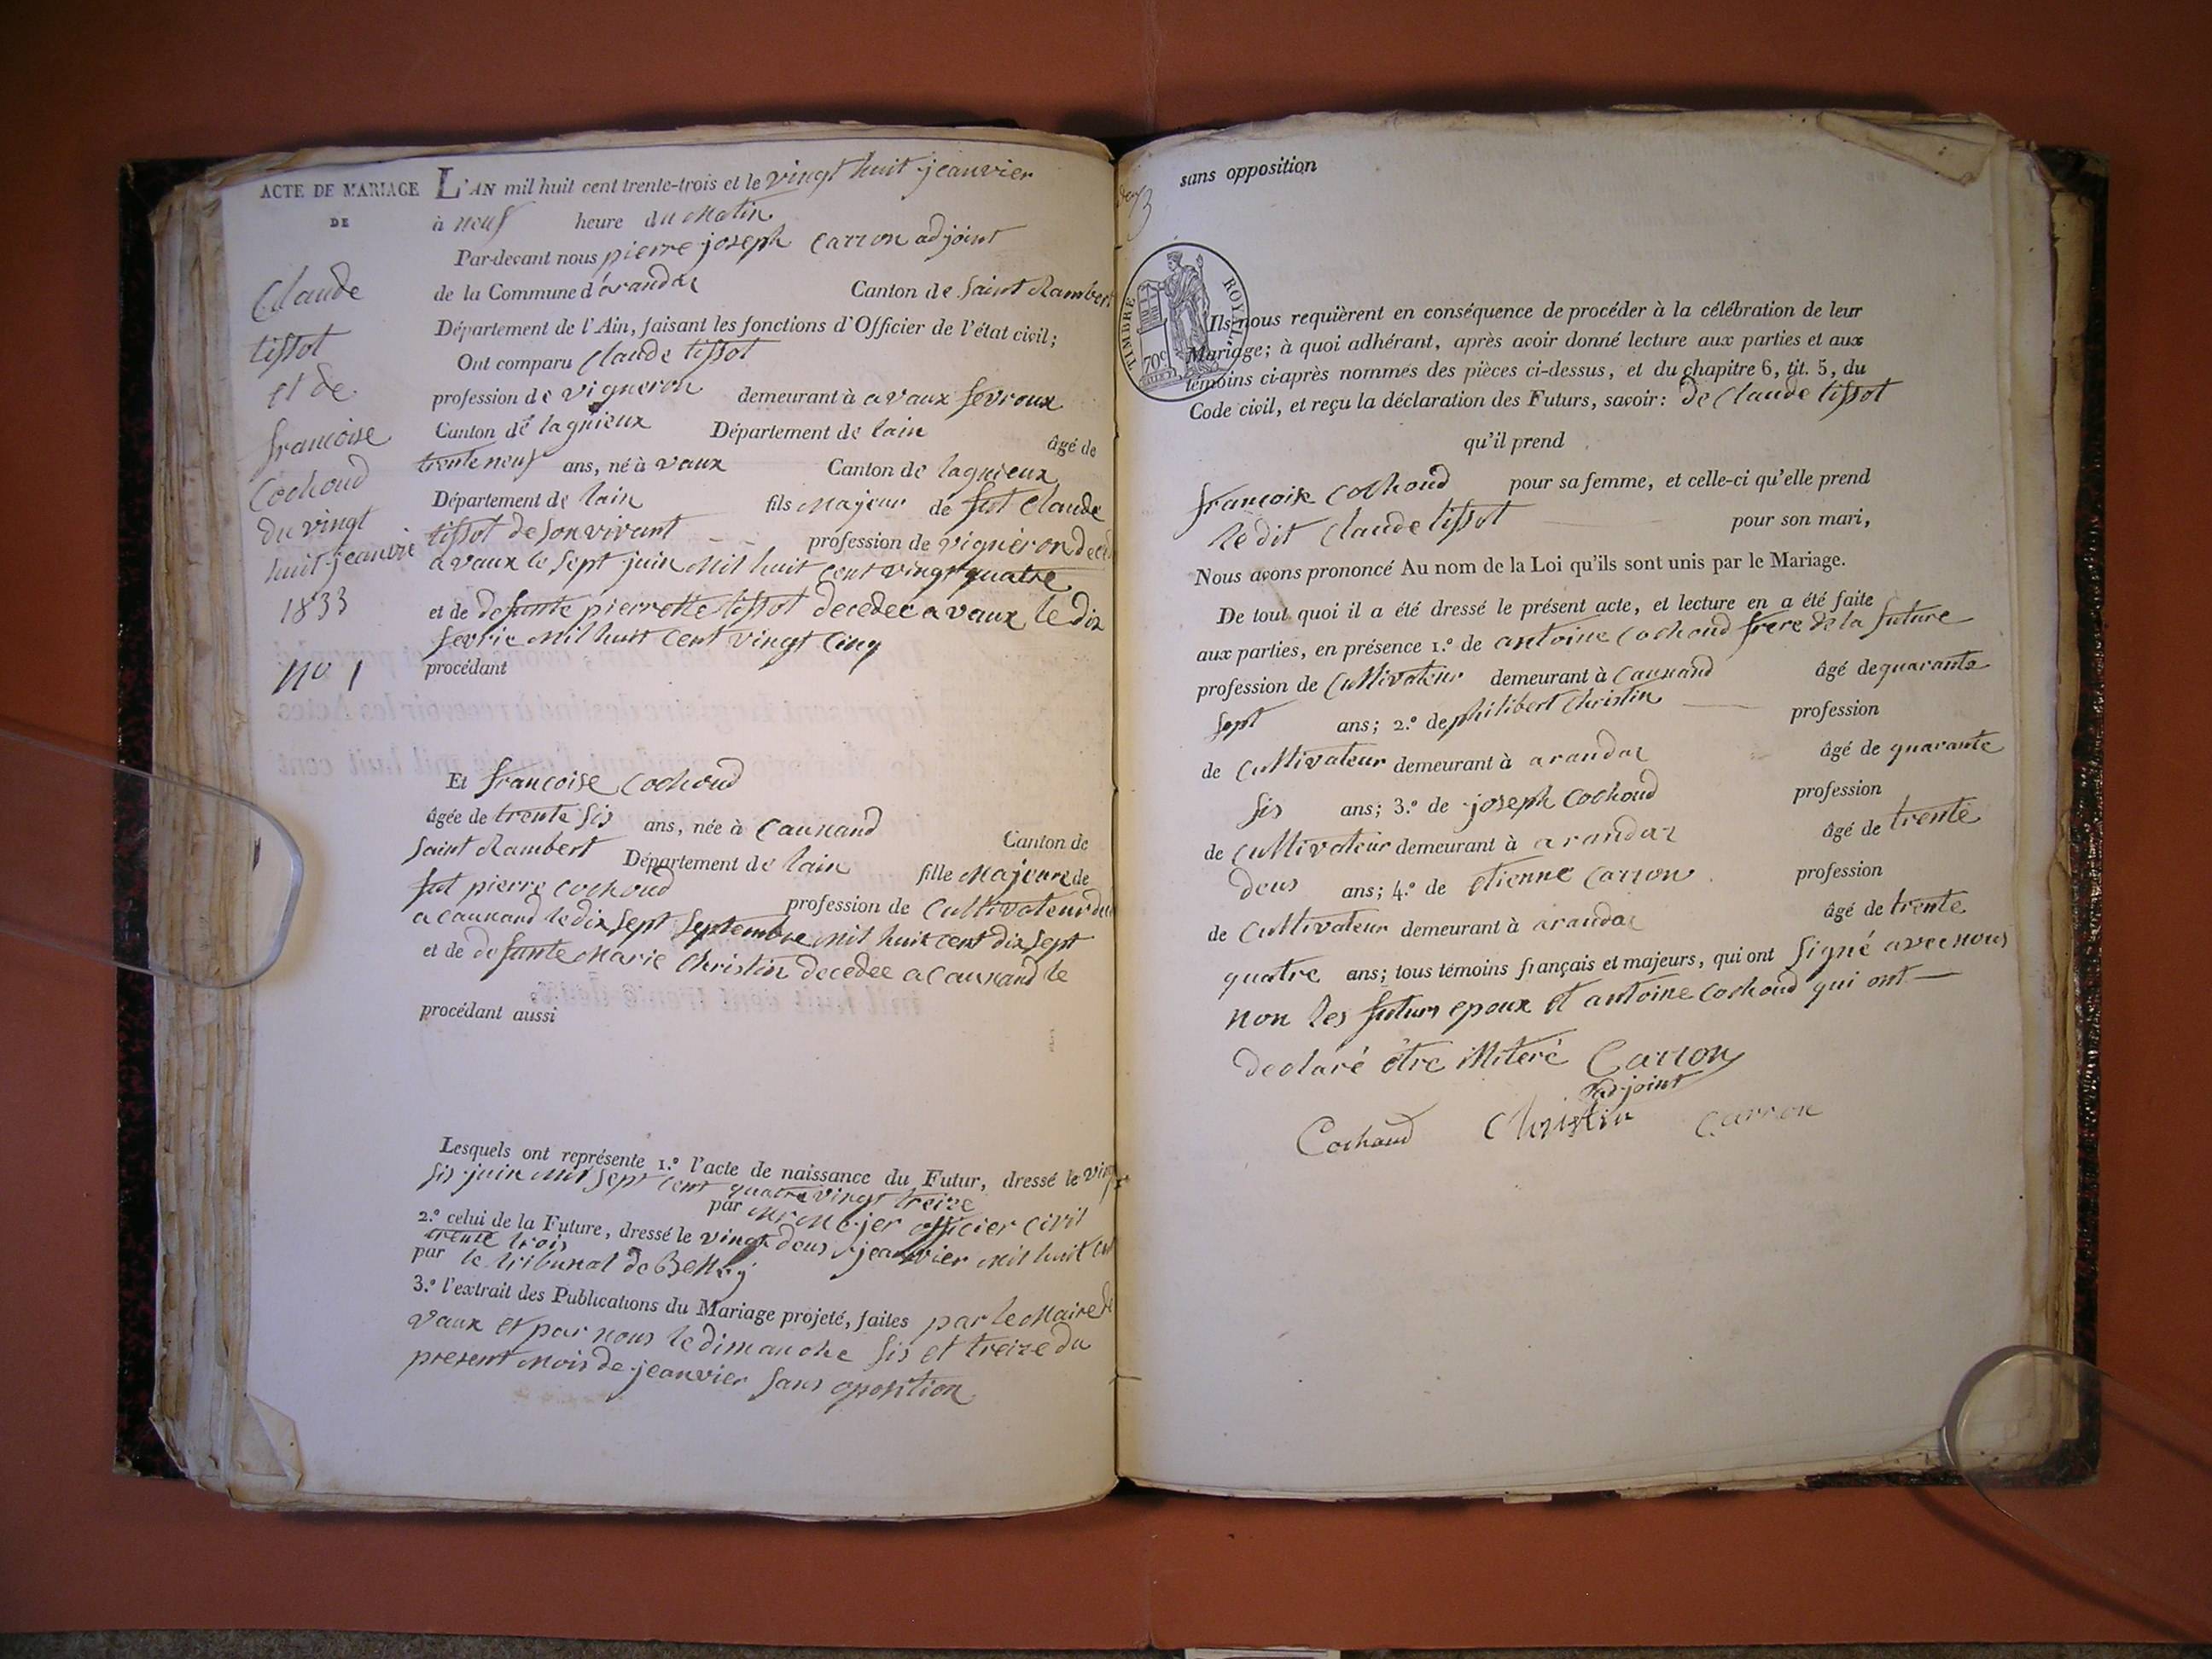 ACTE DE MARIAGE
DE
Claude
tissot
et de
francoise
Cochoud
du vingt
huit jeanvie
1833
no 1
L'AN mil huit cent trente-trois et le vingt huit jeanvier
à neuf heure du matin
Par-devant nous pierre joseph Carron adjoint
de la Commune d'arandas Canton de Saint Rambert
Département de l'Ain, faisant les fonctions d'Officier de l'état civil;
Ont comparu Claude tissot
profession de vigneron demeurant à a vaux fevroux
Canton de lagnieux Département de lain âgé de
trente neuf ans, né à vaux Canton de lagnieux
Département de lain fils majeur de fut Claude
tissot de son vivant profession de vigneron
a vaux le sept juin mil huit cent vingt quatre
et de defunte pierrette tissot decedee a vaux le dix
fevrie mil huit cent vingt cinq
procédant
Et francoise Cochoud
âgée de trente sis ans, née à Caunand Canton de
Saint Rambert Département de lain fille majeure de
fut pierre Cochoud profession de Cultivateur
a Caunand le dix sept septembre mil huit cent dix sept
et de defunte marie Christin decedee a Caunand le
procédant aussi
Lesquels ont représente 1.º l'acte de naissance du Futur, dressé le vingt
sis juin mil sept cent quatre vingt treize
par mr mejer officier civil
2.º celui de la Future, dressé le vingt deus jeanvier mil huit cent
trente trois
par le tribunal de Belley
3.º l'extrait des Publications du Mariage projeté, faites par le maire de
vaux et par nous le dimanche sis et treize du
present mois de jeanvier sans oposition
sans opposition
TIMBRE ROYAL
70c
Ils nous requièrent en conséquence de procéder à la célébration de leur
Mariage; à quoi adhérant, après avoir donné lecture aux parties et aux
témoins ci-après nommés des pièces ci-dessus, et du chapitre 6, tit. 5, du
Code civil, et reçu la déclaration des Futurs, savoir: de Claude tissot
qu'il prend
francoise Cochoud pour sa femme, et celle-ci qu'elle prend
le dit Claude tissot pour son mari,
Nous avons prononcé Au nom de la Loi qu'ils sont unis par le Mariage.
De tout quoi il a été dressé le présent acte, et lecture en a été faite
aux parties, en présence 1.º de antoine Cochoud frere de la future
profession de Cultivateur demeurant à Caunand âgé de quarante
sept ans; 2.º de philibert Christin profession
de Cultivateur demeurant à arandas âgé de quarante
sis ans; 3.º de joseph Cochoud profession
de Cultivateur demeurant à arandas âgé de trente
deus ans; 4.º de etienne Carron profession
de Cultivateur demeurant à arandas âgé de trente
quatre ans; tous témoins français et majeurs, qui ont signé avec nous
non les futurs epoux et antoine Cochoud qui ont
declaré être illiteré Carron
adjoint
Cochoud Christin Carron